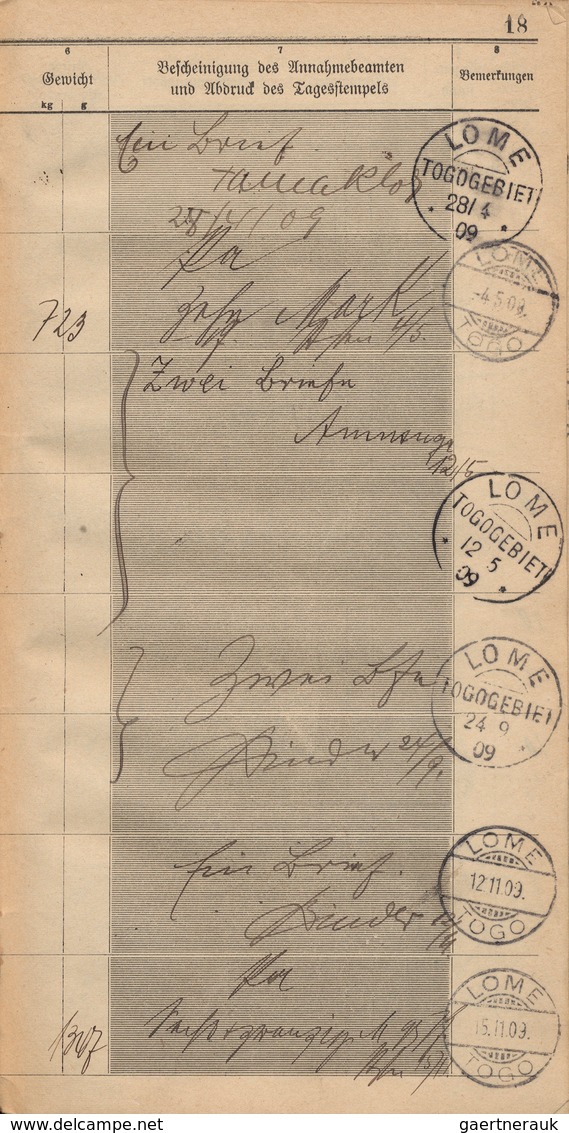 18
6 7 8
Gewicht Bescheinigung des Annahmebeamten Bemerkungen
und Abdruck des Tagesstempels
kg g
Ein Brief
28/4/09
LOME
TOGOGEBIET
28/4
09
Zehn Mark
4/5.
723
LOME
-4.5.09.
TOGO
Zwei Briefe
12/5
LOME
TOGOGEBIET
12 5
09
Zwei Bfe
24/9.
LOME
TOGOGEBIET
24 9
09
Ein Brief.
Binder
LOME
12.11.09.
TOGO
LOME
15.11.09.
TOGO
gaertnerauk